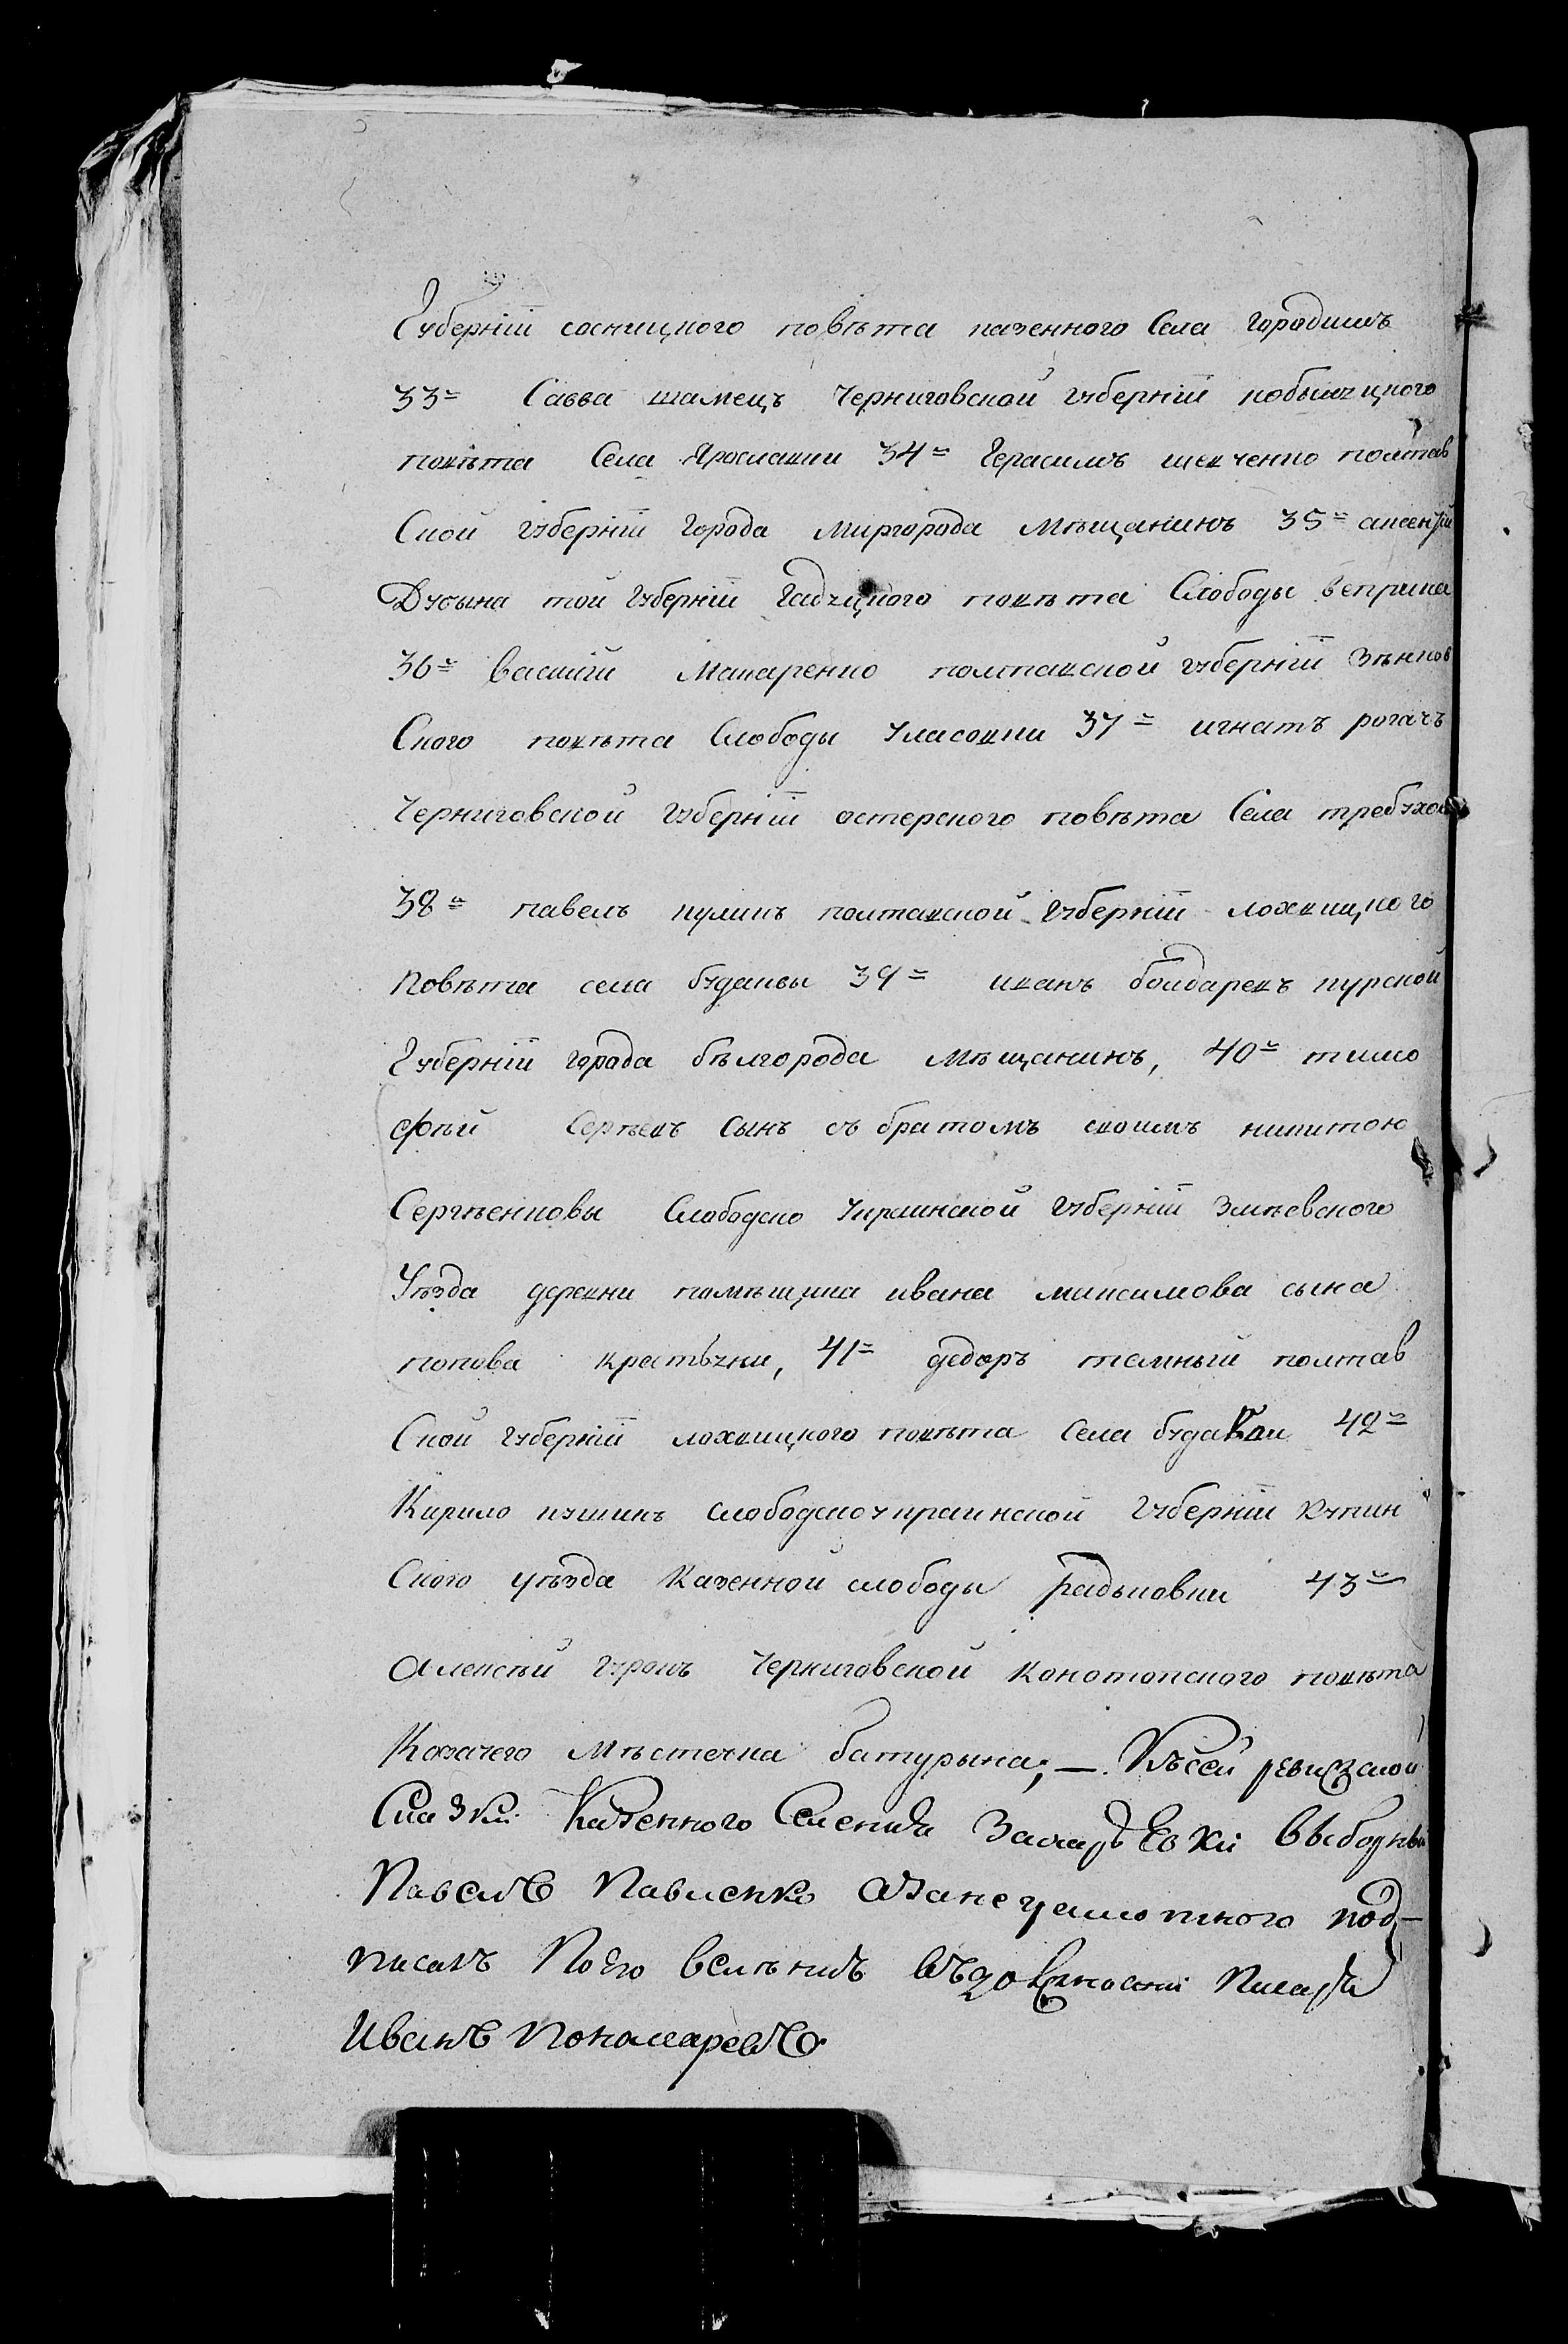 Губерніи сосницкого повѣта казенного Села городищъ
33е Савва шамецъ черниговской губерніи кобыжчцкого
повѣта Села Ярославки 34е Герасимъ шевченко полтав
Ской губерніи города миргорода мѣщанинъ 35е аксентій
Дубына той губерніи гадчцкого повѣта Слободы веприка
36е василій Макаренко полтавской губерніи зѣнков
Ского повѣта Слободы Уласовки 37е игнатъ рогачъ
Черниговской губерніи остерского повѣта Села требухов
38е павелъ куликъ полтавской губерніи лохвицкого
повѣта села будаквы 39е иванъ бондаревъ курской
Губерніи города бѣлгорода мѣщанинъ, 40е тимо
фѣй Сергѣевъ Сынъ съ братомъ своимъ никитою
Сергѣенковы Слободско украинской губерніи змѣевского
Уѣзда деревни помѣщика ивана максимова сына
попова крестьяни, 41е федоръ темный полтав
Ской губерніи лохвицкого повѣта Села будакви 42е
Кирило кушикъ слободскоукраинской губерніи купин
Ского уѣзда Казенной слободы радьковки 43е
Алексѣй гуронъ Черниговской конотопского повѣта
Козачего мѣстечка батурына; —. Къ сей ревизской
Сказки Казенного Селенія выборный
Павелъ Павленко а за неграмотного под-
писалъ по Его велѣнию въ должности писаря
Иванъ Пономаревъ